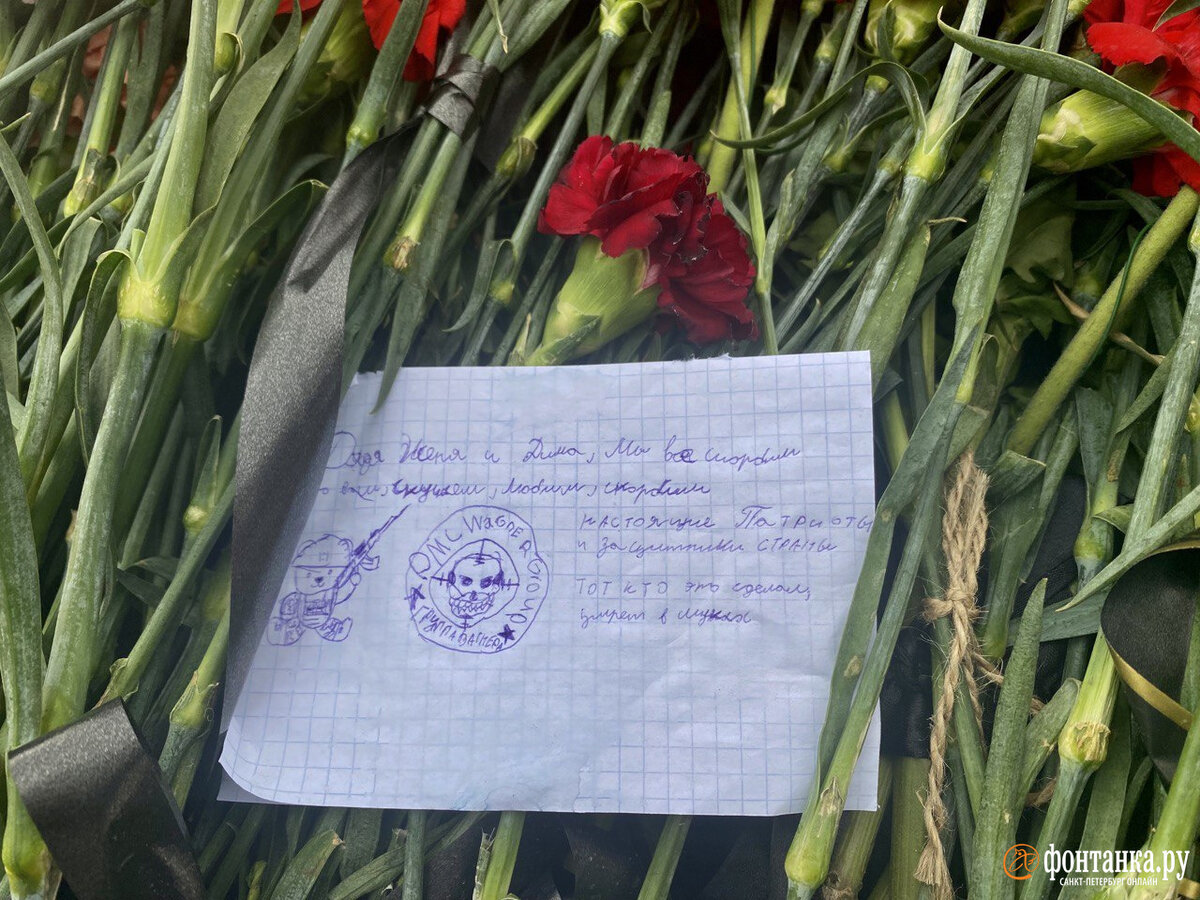 Дядя Женя и Дима, Мы все скорбим
о вас, скучаем, любим, скорбим
PMC WAGNER GROUP
ГРУППА ВАГНЕРА
настоящие Патриоты
и защитники страны
тот кто это сделал,
умрет в муках
фонтанка.ру
САНКТ-ПЕТЕРБУРГ ОНЛАЙН